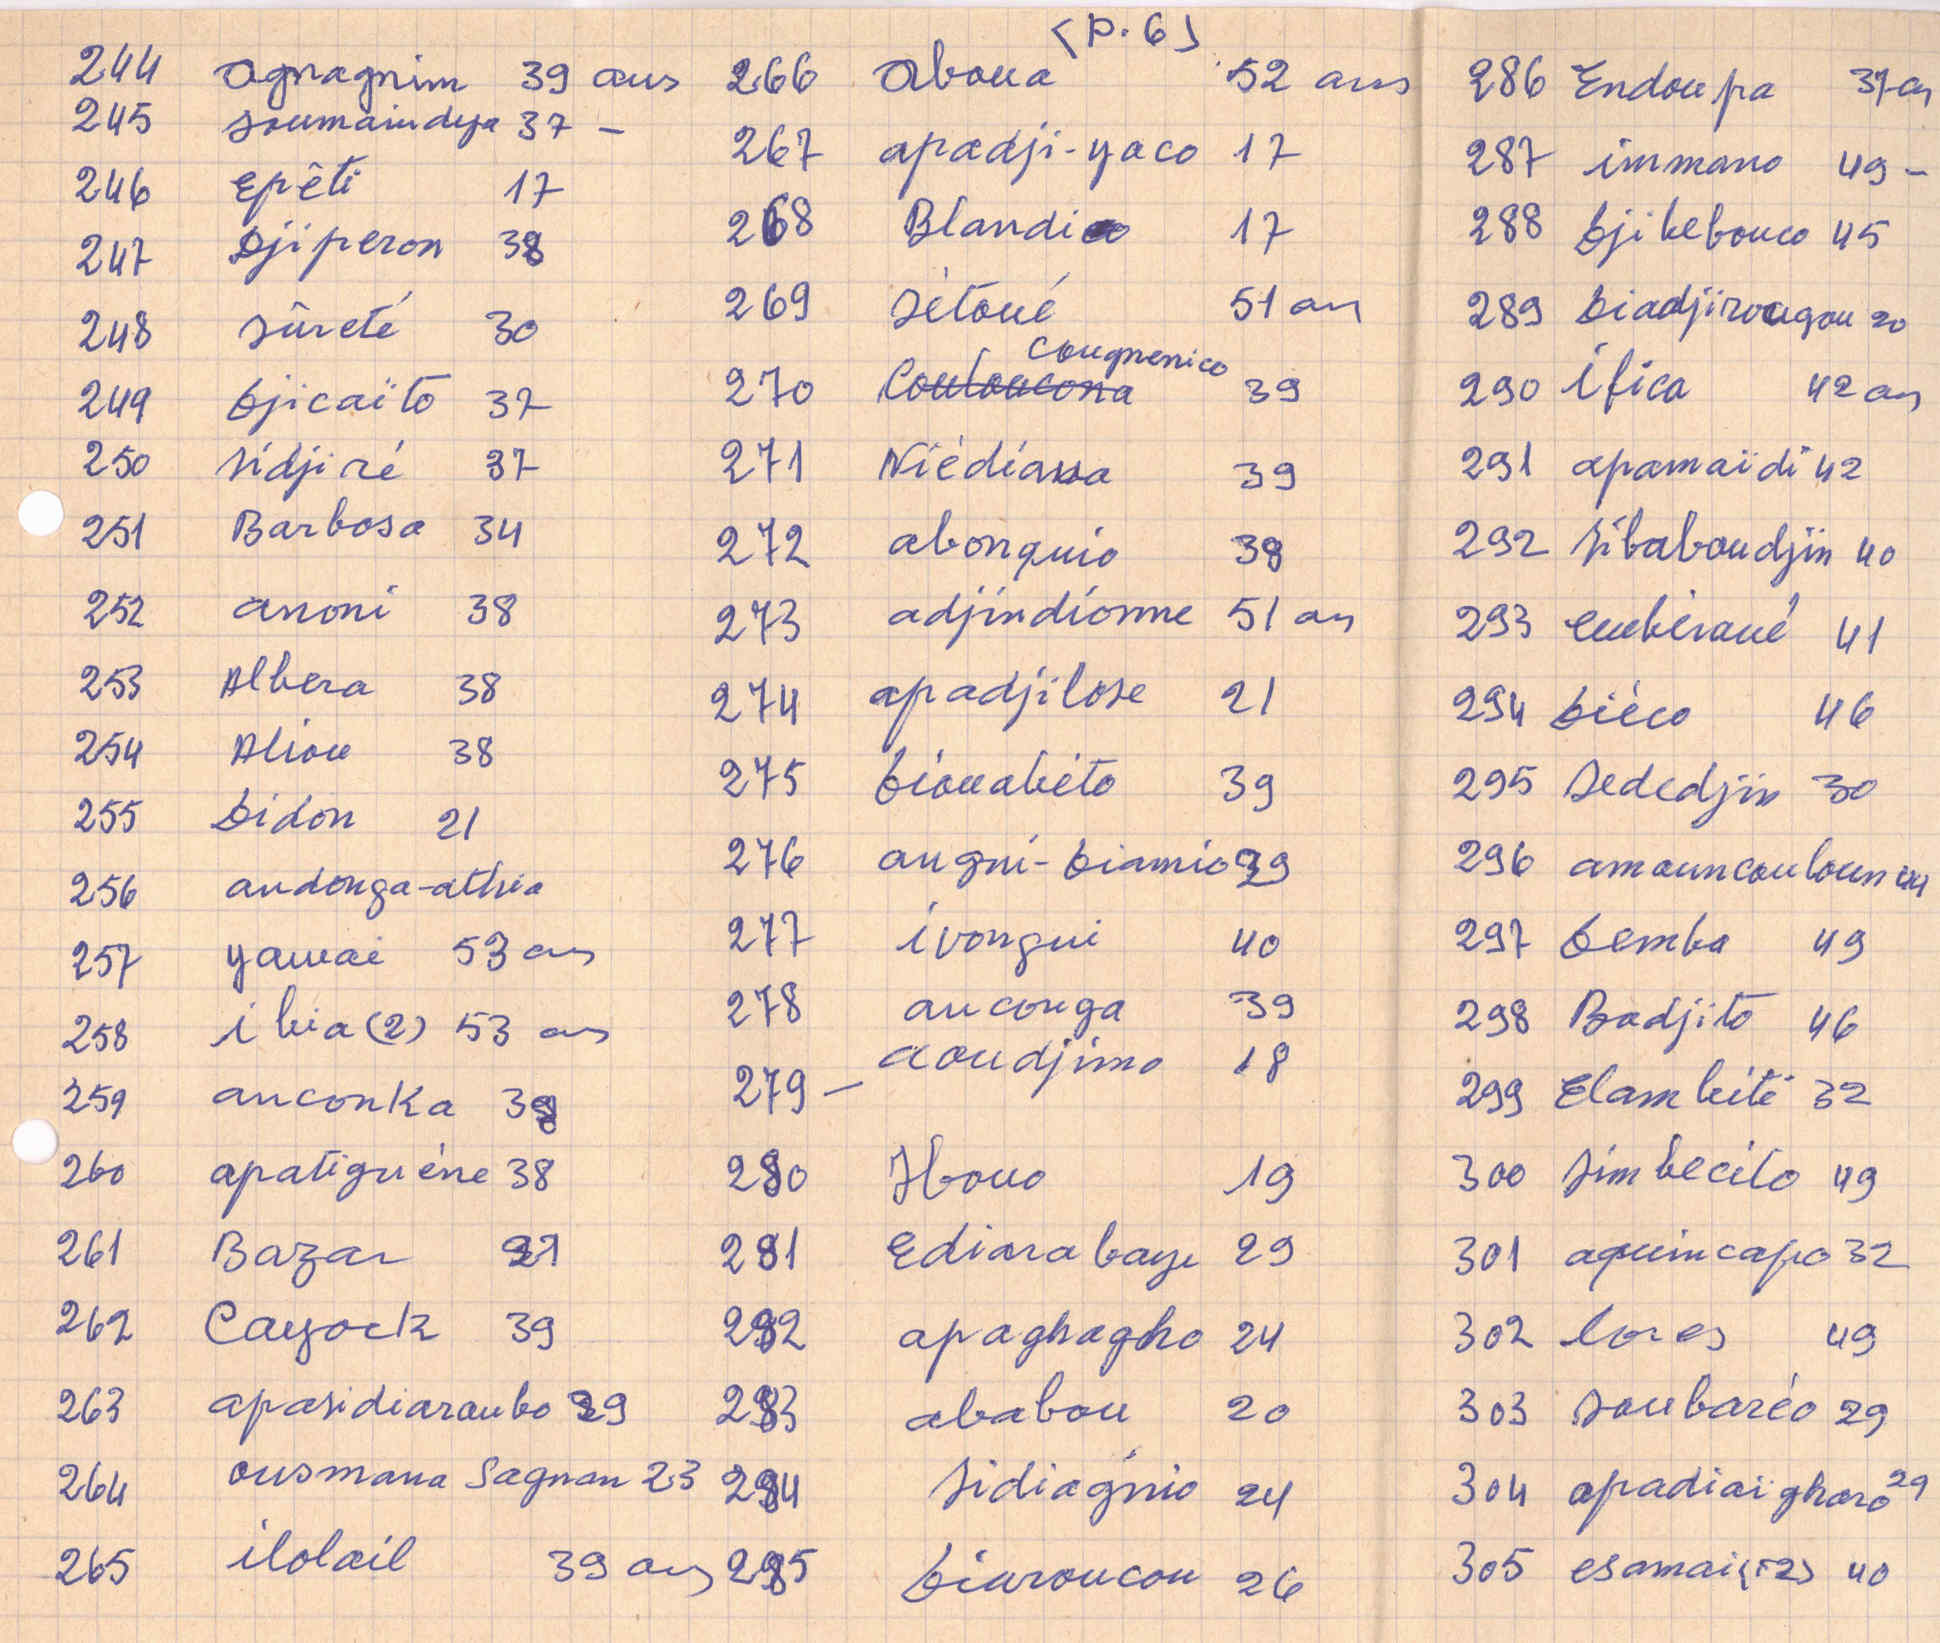 (p. 6)
244 agnagnim 39 ans
245 soumaindya 37 -
246 epêti 17
247 djiperon 38
248 sûreté 30
249 bjicaïto 37
250 sidjiré 37
251 Barbosa 34
252 anoni 38
253 Albera 38
254 Aliou 38
255 bidon 21
256 andonga-athia
257 yawai 53 ans
258 ibia (2) 53 ans
259 anconka 38
260 apatiguène 38
261 Bazar 21
262 Cayock 39
263 apasidiaraubo 39
264 ousmana Sagnan 23
265 ilolail 39 ans
266 aboua 52 ans
267 apadji-yaco 17
268 Blandio 17
269 sétoué 51 an
270 Couloucona Cougnenico 39
271 Niédiana 39
272 abonquio 38
273 adjindionne 51 an
274 apadjilose 21
275 biouabéto 39
276 angni-biamio 39
277 ivongui 40
278 anconga 39
279 - aoudjimo 18
280 Ibouo 19
281 Ediarabaye 29
282 apaghagho 24
283 ababou 20
284 sidiagnio 24
285 biaroucou 26
286 Endoupa 37 an
287 immano 49 -
288 bjibebouco 45
289 biadjirougou 20
290 ifica 42 an
291 apamaïdi 42
292 sibaboudjin 40
293 embéraué 41
294 biéco 46
295 sededjin 30
296 amouncouloun 44
297 bemba 49
298 Badjito 46
299 Elambêté 32
300 simbecilo 49
301 aquincapo 32
302 lores 49
303 soubaréo 29
304 apadiaïgharo 29
305 esamai (2) 40